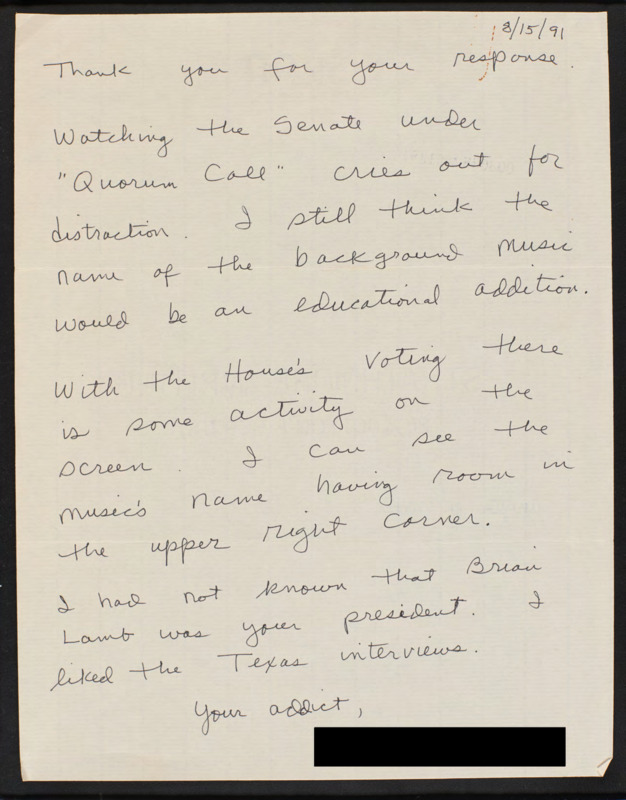 8/15/91
Thank you for your response.
Watching the Senate under
"Quorum Call" cries out for
distraction. I still think the
name of the background music
would be an educational addition.
With the House's voting there
is some activity on the
screen. I can see the
music's name having room in
the upper right corner.
I had not known that Brian
Lamb was your president. I
liked the Texas interviews.
Your addict,